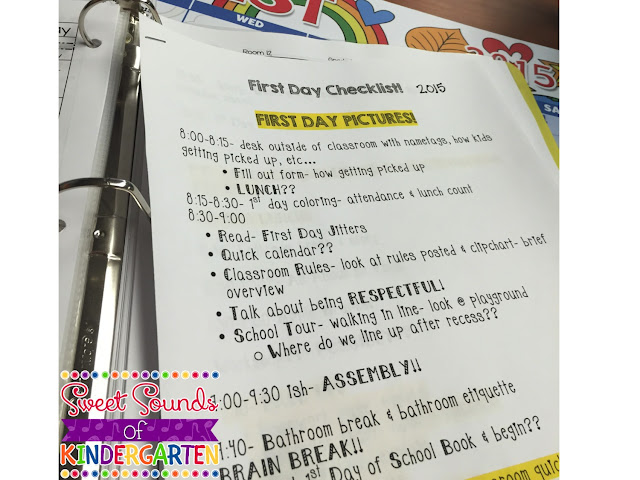 WED
2015
Room 12
First Day Checklist! 2015
FIRST DAY PICTURES!
8:00-8:15- desk outside of classroom with nametags, how kids
getting picked up, etc...
• Fill out form- how getting picked up
• LUNCH??
8:15-8:30- 1st day coloring- attendance & lunch count
8:30-9:00
• Read- First Day Jitters
• Quick calendar??
• Classroom Rules- look at rules posted & clipchart- brief
overview
• Talk about being RESPECTFUL!
• School Tour- walking in line- look @ playground
o Where do we line up after recess??
:00-9:30 ish- ASSEMBLY!!
:40- Bathroom break & bathroom etiquette
BRAIN BREAK!!
1st Day of School Book & begin??
Sweet Sounds
of
KINDERGARTEN